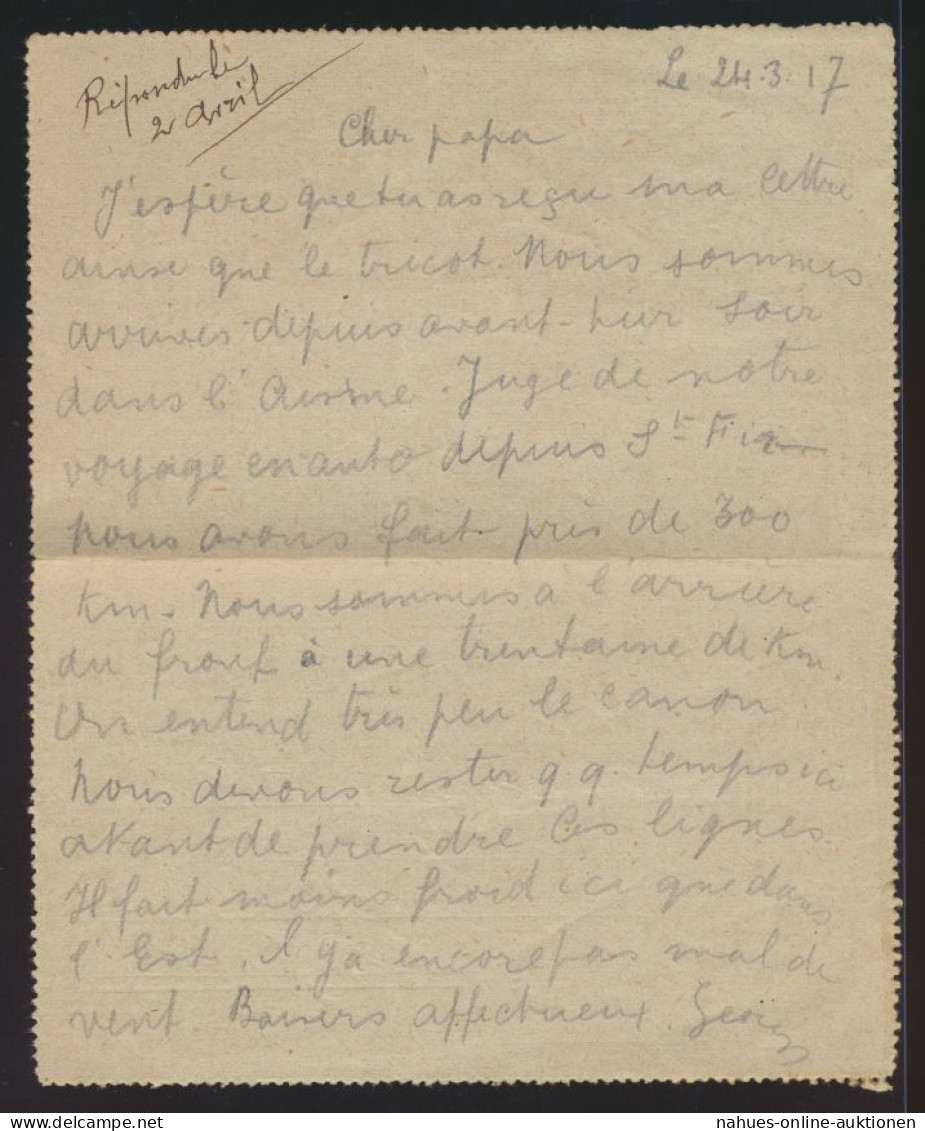 Répondu le
2 Avril
Le 24.3.17
Cher papa
J'espère que tu as reçu ma lettre
ainsi que le tricot. Nous sommes
arrivés depuis avant-hier soir
dans l'Aisne. Juge de notre
voyage en auto depuis St
nous avons fait près de 300
Km. Nous sommes à l'arrière
du front à une trentaine de Km.
On entend très peu le canon.
Nous devons rester qq. temps ici
avant de prendre les lignes.
Il fait moins froid ici que dans
l'Est, il y a encore pas mal de
vent. Baisers affectueux. Georges
WWW.HIPPOSTCARD.COM
nahues-online-auktionen